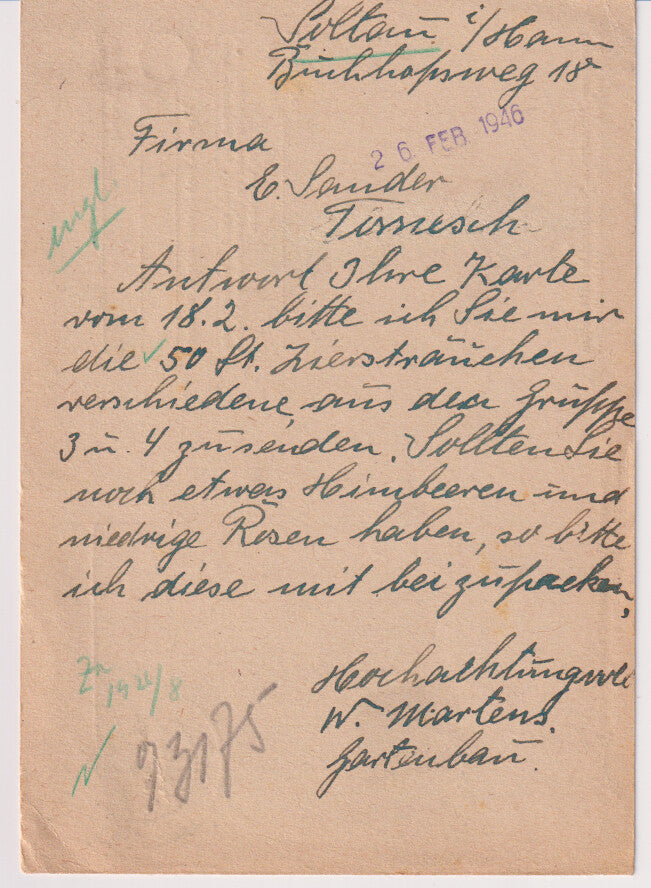 Soltau i/Hann
Buchhopsweg 18
Firma
26 FEB 1946
E. Sander
Tornesch
engl.
Antwort Ihre Karte
vom 18.2. bitte ich Sie mir
die 50 St. Ziersträuchen
verschiedene aus den Gruppe
3 u. 4 zusenden. Sollten Sie
noch etwas Himbeeren und
niedrige Rosen haben, so bitte
ich diese mit beizupacken,
Hochachtungsvoll
W. Martens.
Gartenbau.